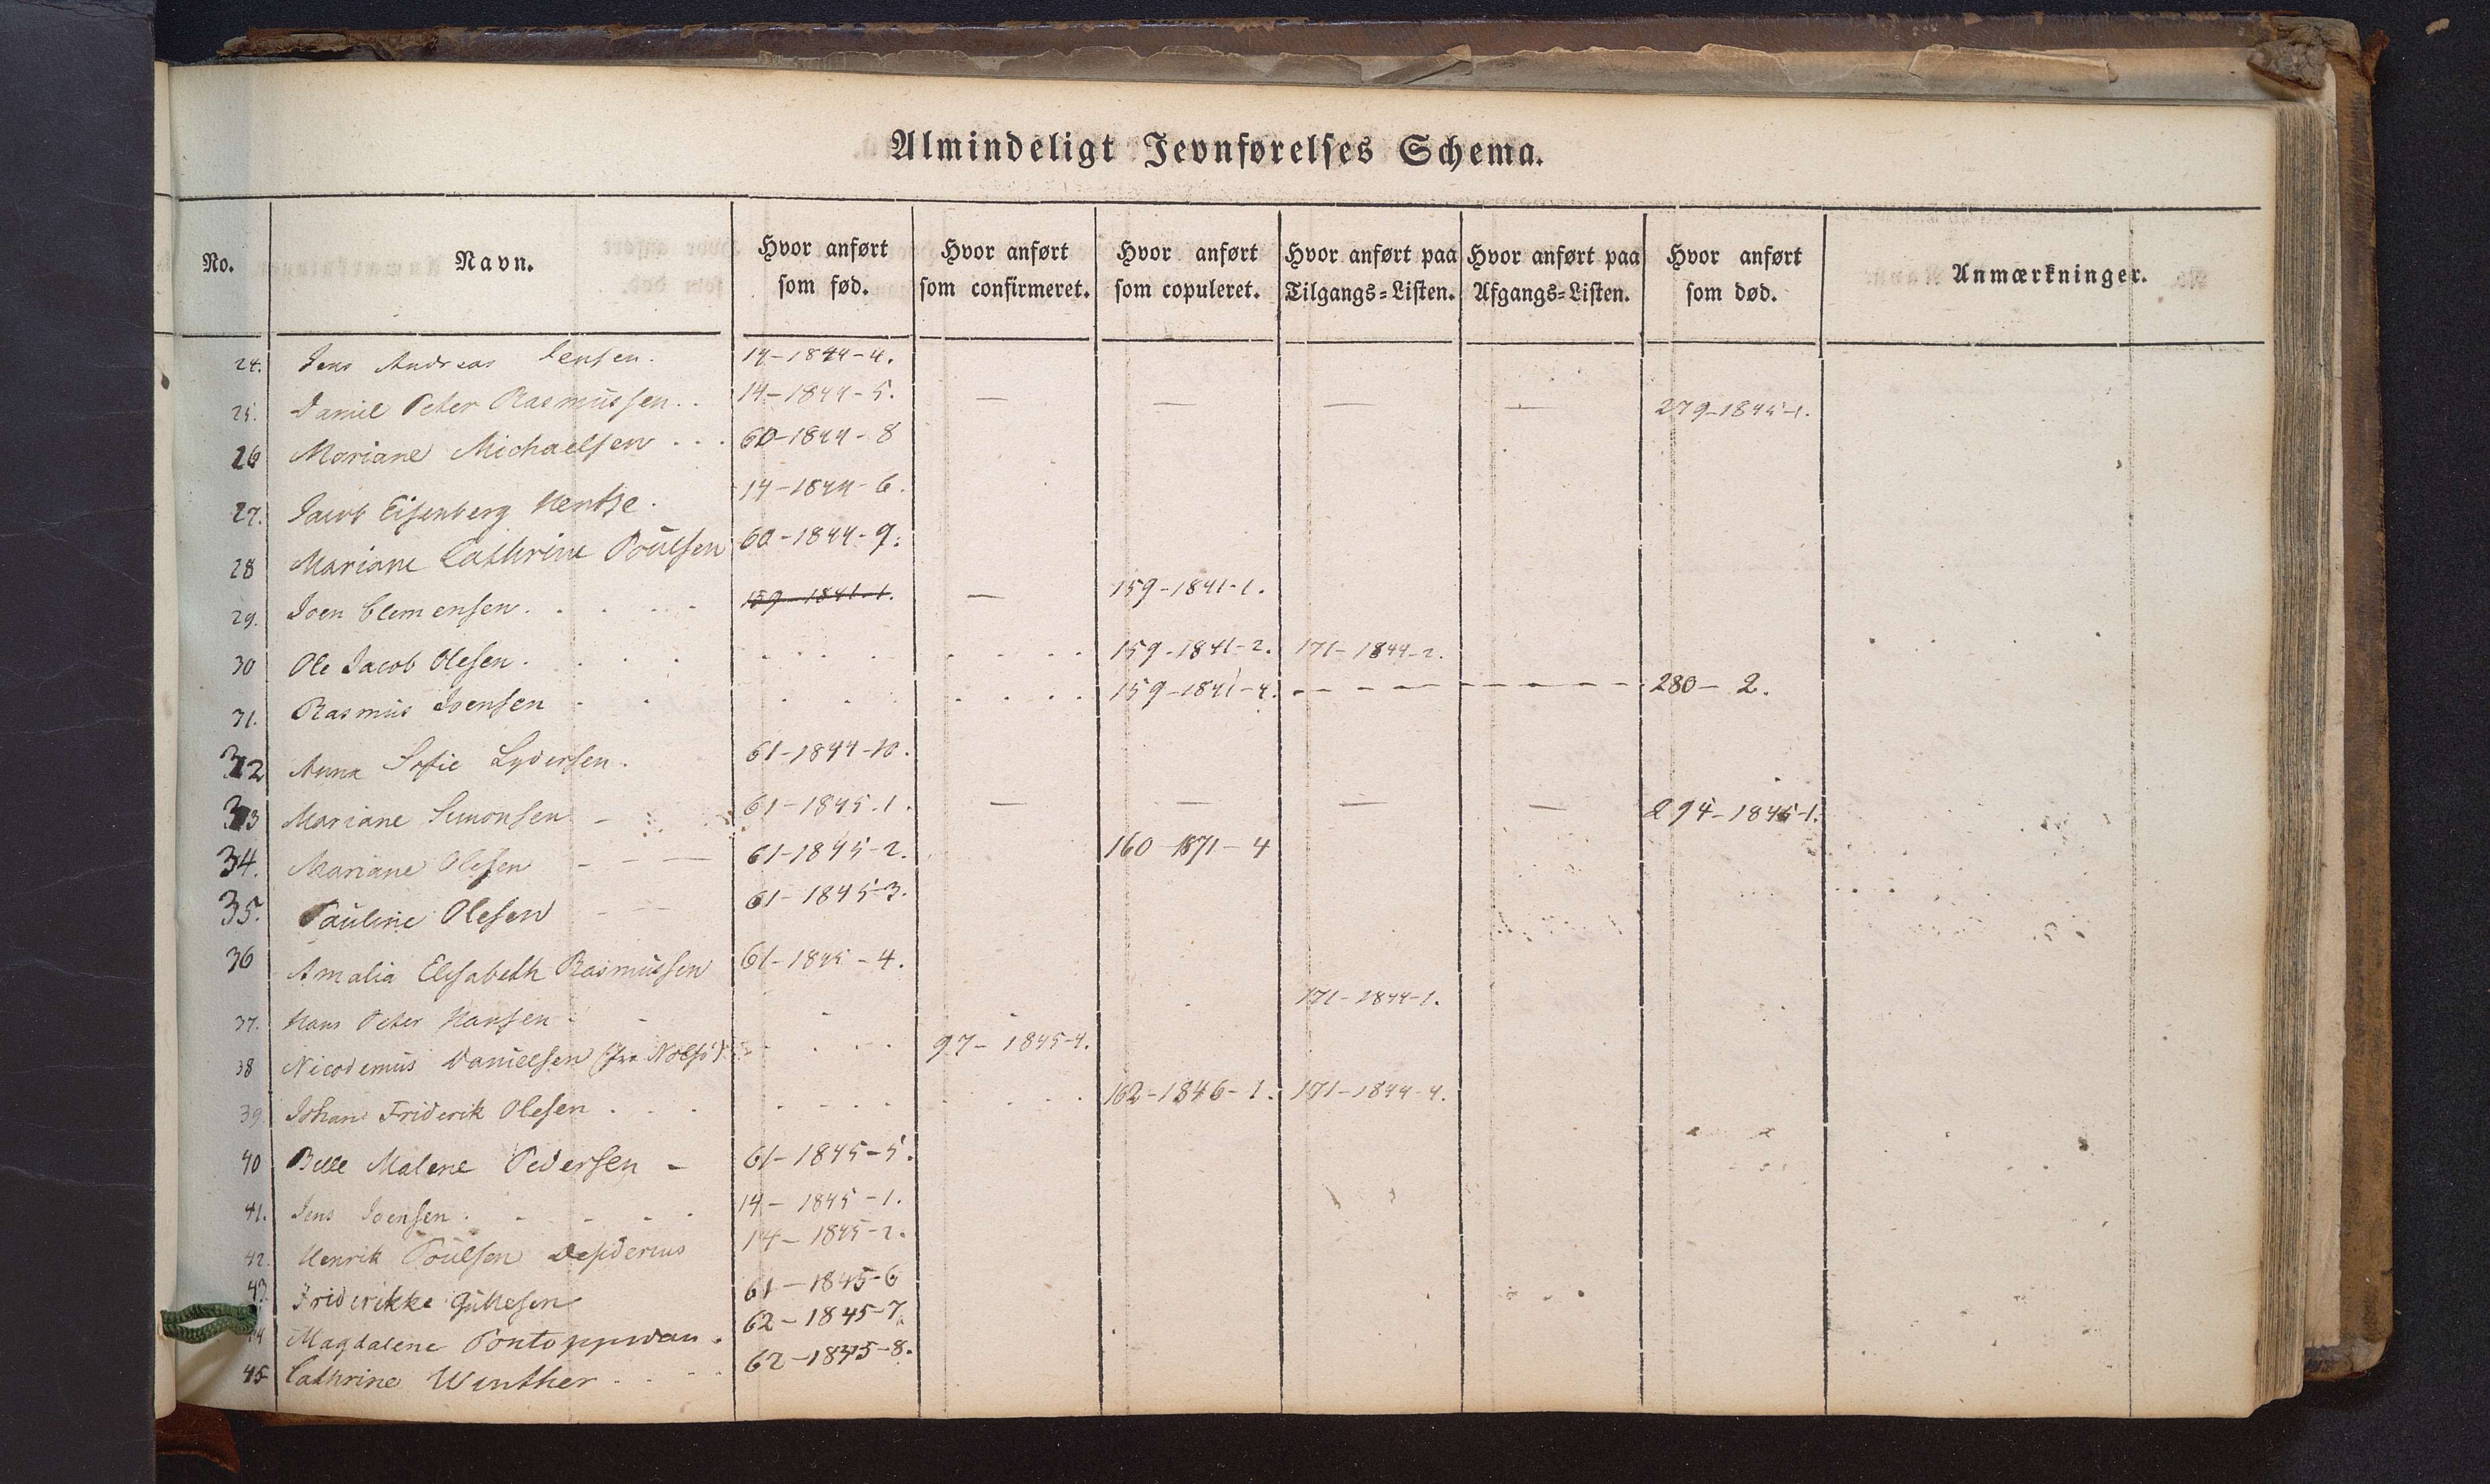 Almindeligt Jevnførelses Schema.
No. Navn. Hvor anført som fød. Hvor anført som confirmeret. Hvor anført som copuleret. Hvor anført paa Tilgangs-Listen. Hvor anført paa Afgangs-Listen. Hvor anført som død. Anmærkninger.
24. Jens Andreas Jensen. 14-1844-4.
25. Daniel Peter Rasmussen . . 14-1844-5. — — — — 279-1845-1.
26 Mariane Michaelsen . . . 60-1844-8
27. Jacob Eisenberg Hentze. 14-1844-6.
28 Mariane Cathrine Poulsen 60-1844-9.
29. Joen Clemensen . . . . . 159-1841-1. — 159-1841-1.
30 Ole Jacob Olesen . . . . 159-1841-2. 171-1844-2.
31. Rasmus Joensen . . 159-1841-4. - - - - 280- 2.
32 Anna Sofie Lydersen. 61-1844-10.
33 Mariane Simonsen - 61-1845.1. — — — — 294-1845-1.
34. Mariane Olesen - - — 61-1845-2. 160-1871-4
35. Pauline Olesen - — 61-1845-3.
36 Amalia Elisabeth Rasmussen 61-1845-4.
37. Hans Peter Hansen - - 171-1844-1.
38 Nicodemus Danielsen (fra Nolsø) 97-1845-4.
39. Johan Friderik Olesen . . . 162-1846-1. 171-1844-4.
40 Bille Malene Pedersen - 61-1845-5.
41. Jens Joensen . - - - - 14-1845-1.
42. Henrik Poulsen Desiderius 14-1845-2.
43. Friderikke Guttesen 61-1845-6
44 Magdalene Pontoppidan . 62-1845-7.
45 Cathrine Winther . . . 62-1845-8.